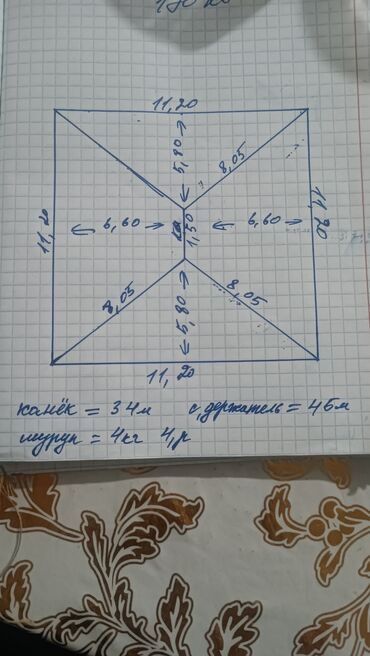 11,20
5,80
8,05
11,20
6,60
1,50
6,60
11,20
8,05
5,80
8,05
11,20
канёк = 34м с,держатель = 45м
шуруп = 4кг 4,р